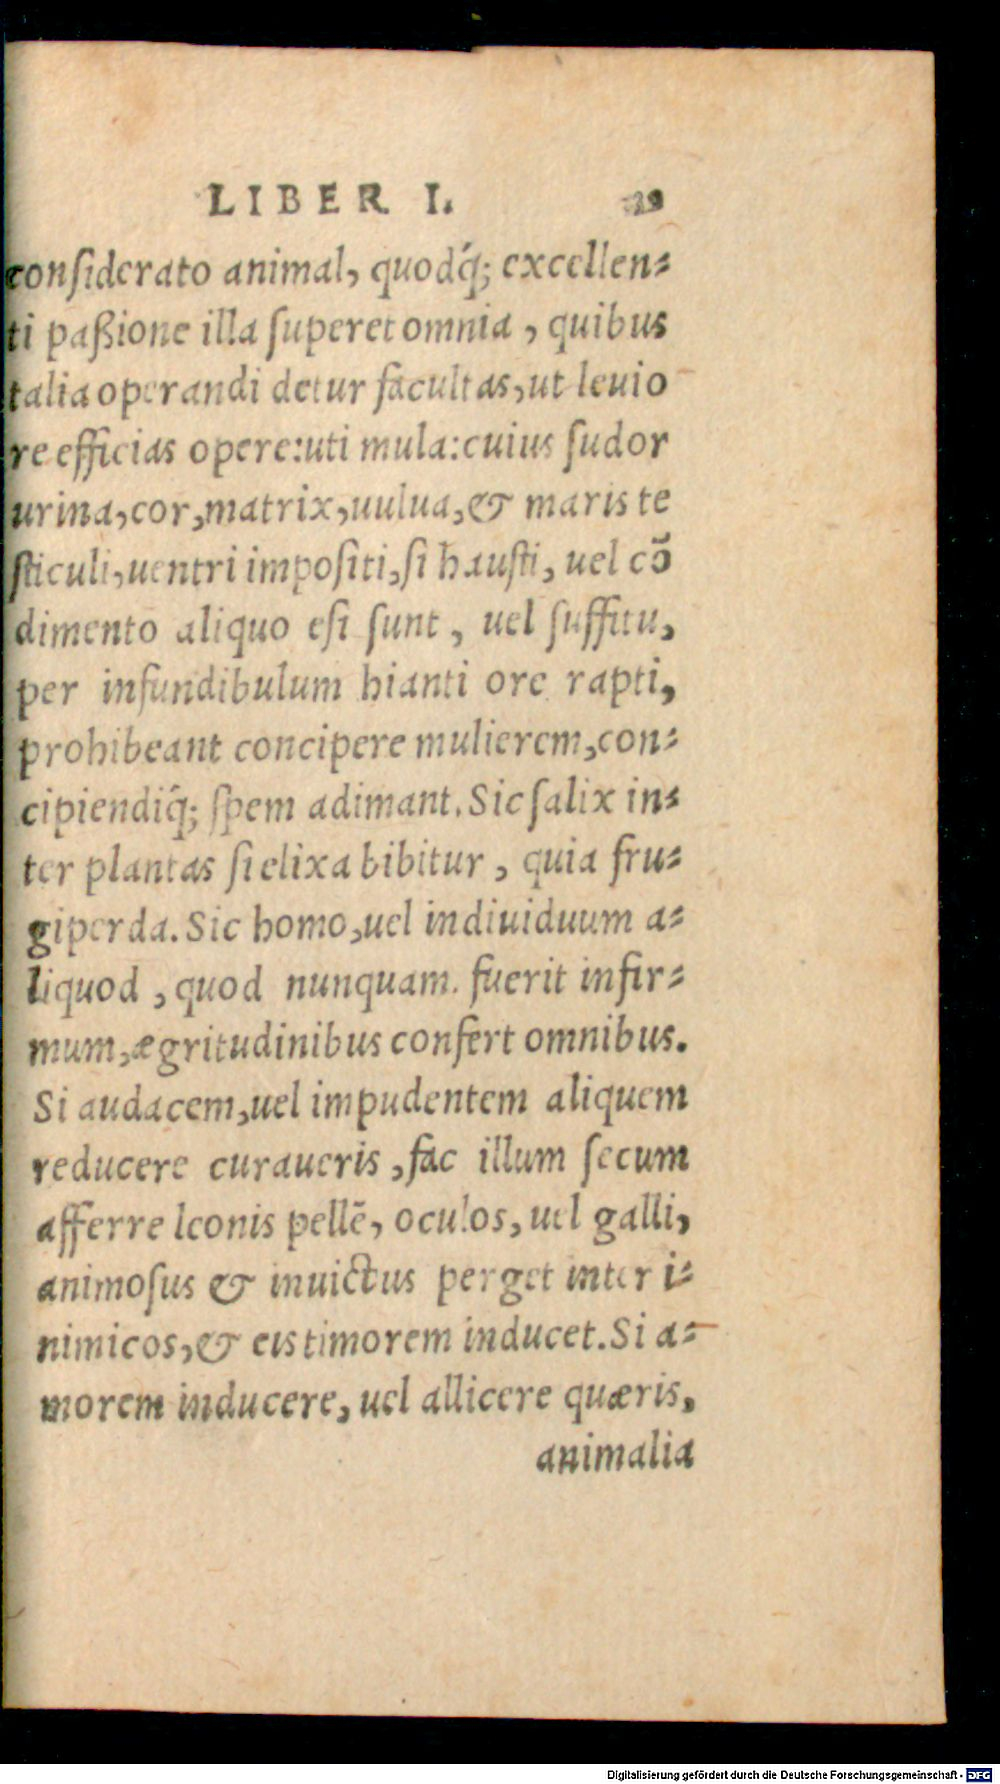 LIBER I. 29
conſiderato animal, quodq́; excellen⸗
ti paßione illa ſuperet omnia, quibus
talia operandi detur facultas, ut leuio
re efficias opere: uti mula: cuius ſudor
urina, cor, matrix, uulua, & maris te
ſticuli, uentri impoſiti, ſi hauſti, uel cō
dimento aliquo eſi ſunt, uel ſuffitu,
per infundibulum hianti ore rapti,
prohibeant concipere mulierem, con⸗
cipiendiq́; ſpem adimant. Sic ſalix in⸗
ter plantas ſi elixa bibitur, quia fru⸗
giperda. Sic homo, uel indiuiduum a⸗
liquod, quod nunquam. fuerit infir⸗
mum, ægritudinibus confert omnibus.
Si audacem, uel impudentem aliquem
reducere curaueris, fac illum ſecum
afferre leonis pellē, oculos, uel galli,
animoſus & inuictus perget inter i⸗
nimicos, & eis timorem inducet. Si a⸗
morem inducere, uel allicere quæris,
animalia
Digitalisierung gefördert durch die Deutsche Forschungsgemeinschaft - DFG